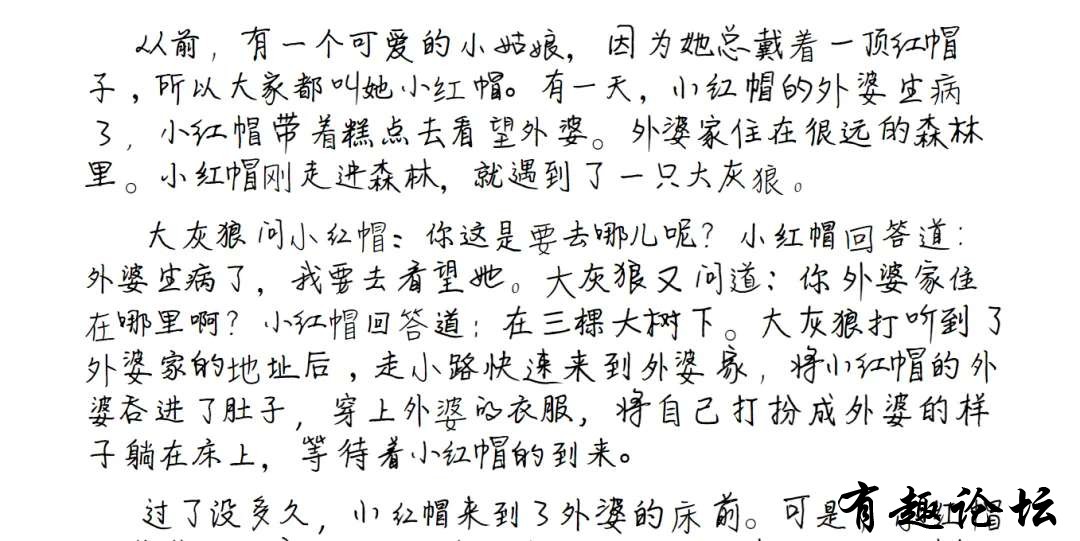 从前，有一个可爱的小姑娘，因为她总戴着一顶红帽
子，所以大家都叫她小红帽。有一天，小红帽的外婆生病
了，小红帽带着糕点去看望外婆。外婆家住在很远的森林
里。小红帽刚走进森林，就遇到了一只大灰狼。
大灰狼问小红帽：你这是要去哪儿呢？小红帽回答道：
外婆生病了，我要去看望她。大灰狼又问道：你外婆家住
在哪里啊？小红帽回答道：在三棵大树下。大灰狼打听到了
外婆家的地址后，走小路快速来到外婆家，将小红帽的外
婆吞进了肚子，穿上外婆的衣服，将自己打扮成外婆的样
子躺在床上，等待着小红帽的到来。
过了没多久，小红帽来到了外婆的床前。可是 红帽
有趣论坛